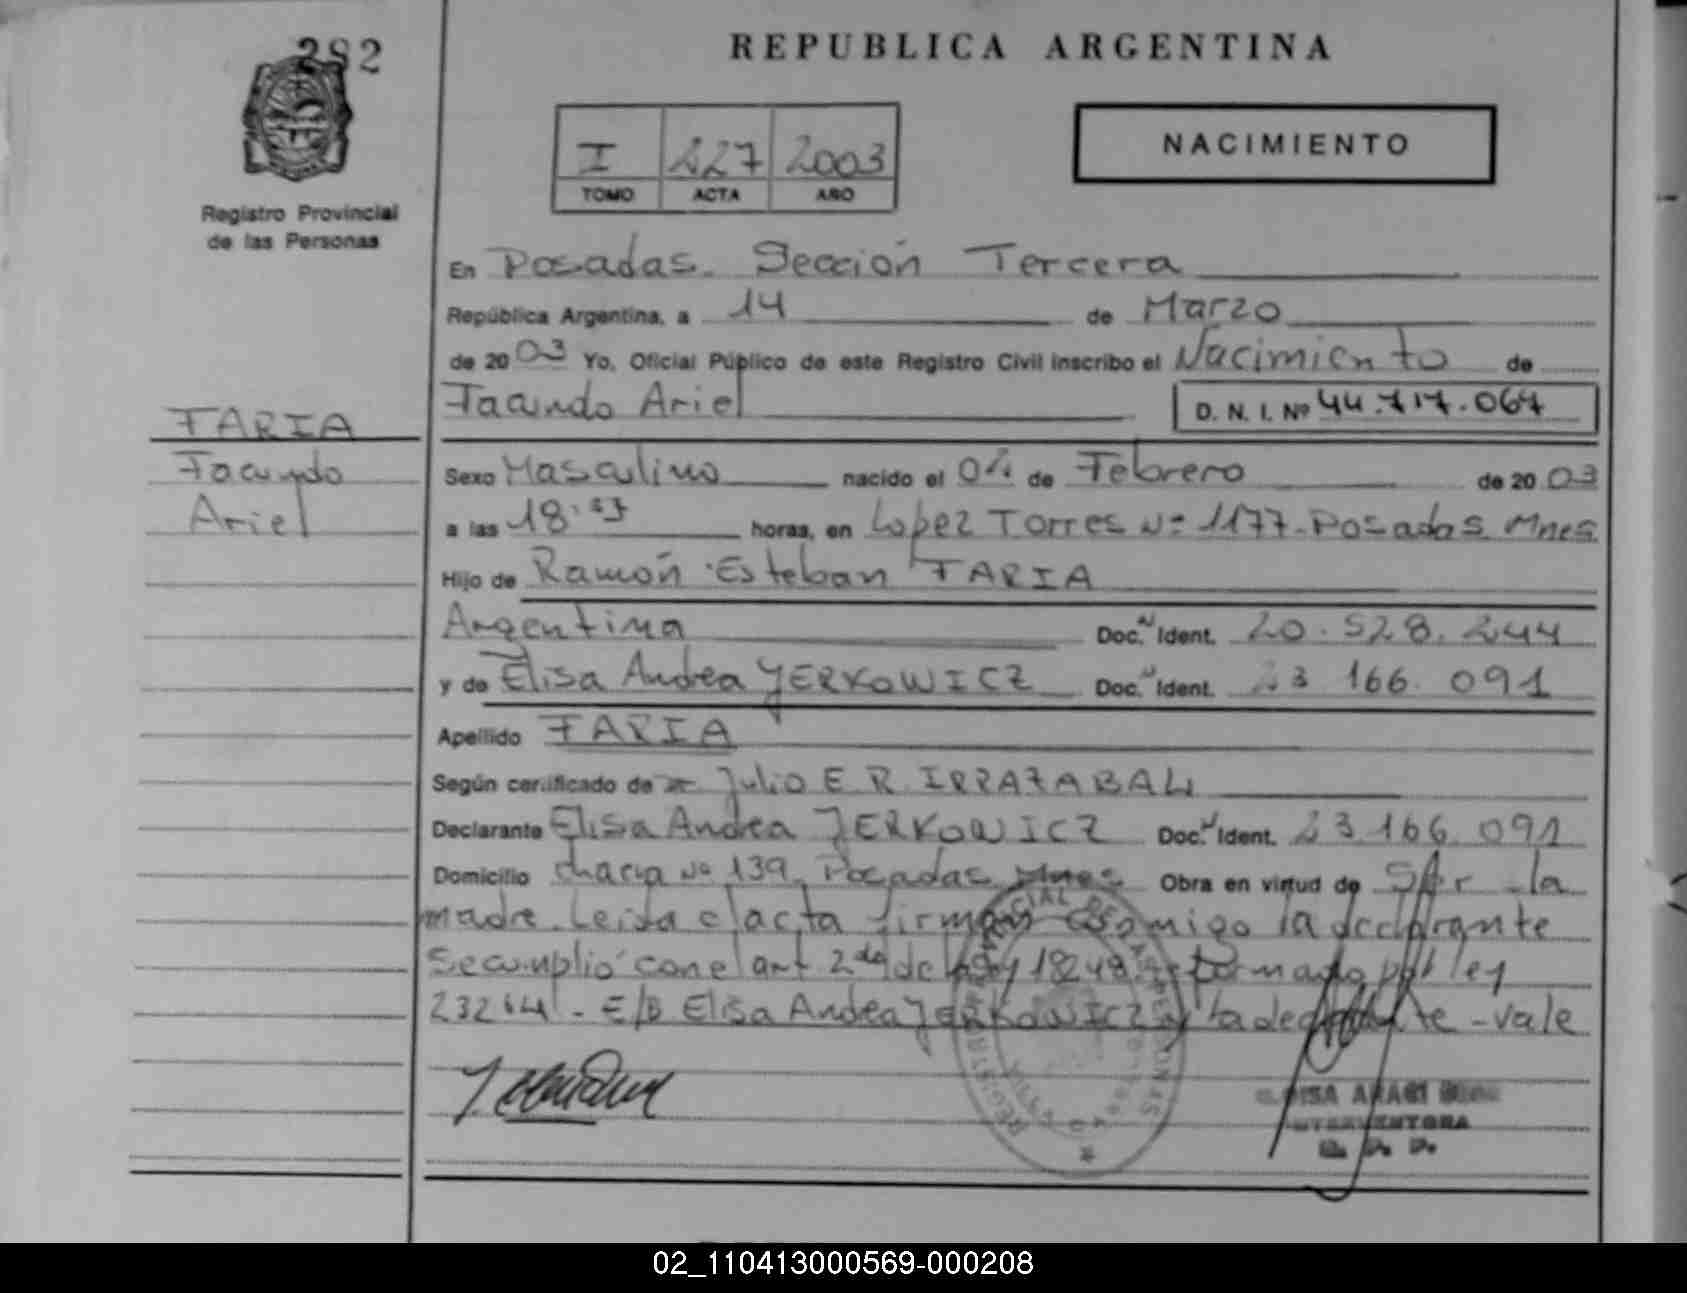 282
REPUBLICA ARGENTINA
I 227 2003
TOMO ACTA AÑO
NACIMIENTO
Registro Provincial
de las Personas
En Posadas. Sección Tercera
República Argentina, a 14 de Marzo
de 2003 Yo, Oficial Público de este Registro Civil inscribo el Nacimiento de
Facundo Ariel D. N. I. Nº 44.717.067
FARIA
Facundo
Ariel
Sexo Masculino nacido el 04 de Febrero de 2003
a las 18: horas, en Lopez Torres Nº 1177-Posadas Mnes
Hijo de Ramón Esteban FARIA
Argentina Doc. Ident. 20.528.244
y de Elisa Andrea JERKOWICZ Doc. Ident. 23 166.091
Apellido FARIA
Según certificado de Julio E R. IRRAZABAL
Declarante Elisa Andrea JERKOWICZ Doc. Ident. 23.166.091
Domicilio chacra Nº 139. Posadas Mnes Obra en virtud de Ser la
madre. Leida el acta firman conmigo la declarante
Se cumplió con el art 2do de la ley 18248. reformado por ley
23264 - E/B Elisa Andrea JERKOWICZ y la declarante - vale
INTERVENTORA
02_110413000569-000208